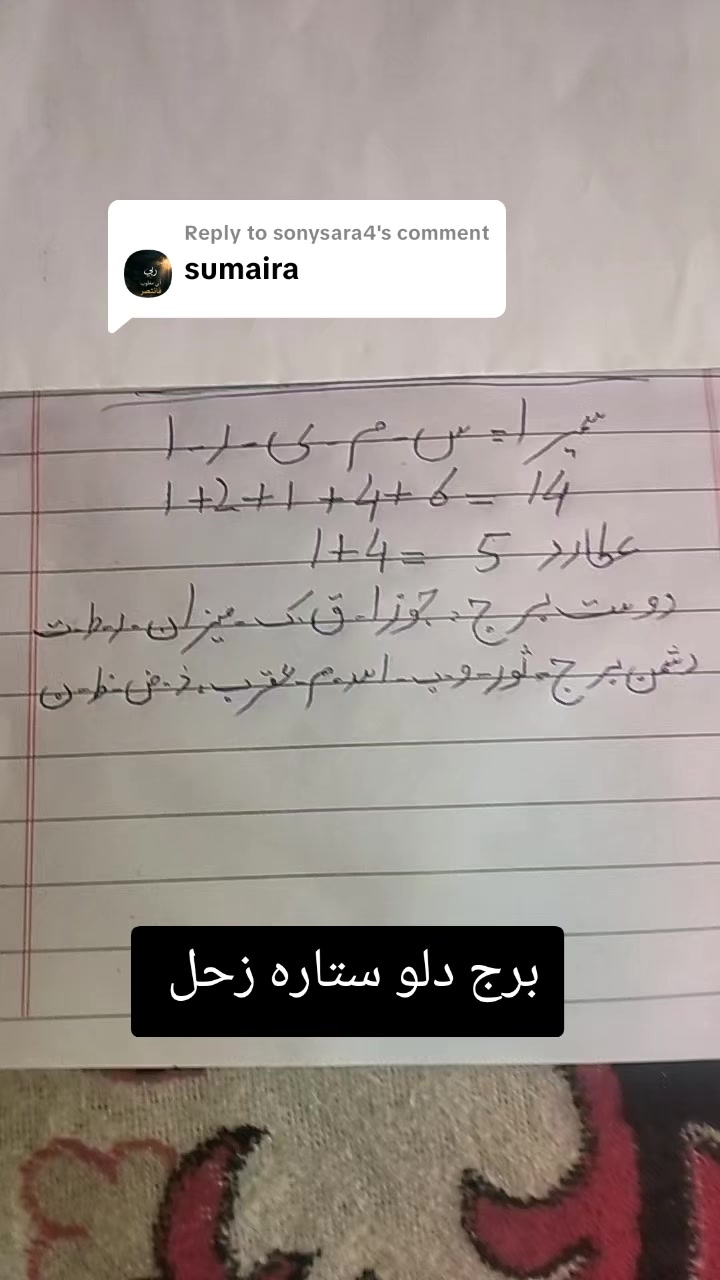 Reply to sonysara4's comment
sumaira
سمیرا = س - م - ی - ر - ا
1+2+1+4+6 = 14
1+4= 5 عطارد
دوست برج، جوزا - ق ک - میزان - ر - ط - ت
دشمن برج - ثور - و - ب - اسد - م - عقرب، ذ - ض - ظ - ن
برج دلو ستاره زحل